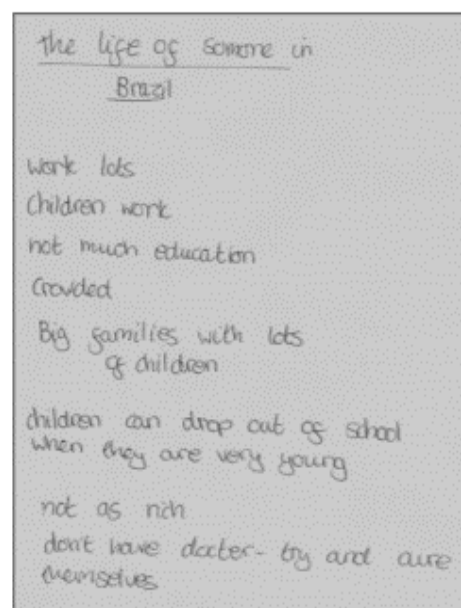 the life of somone in
Brazil
work lots
children work
not much education
Crowded
Big families with lots
of children
children can drop out of school
when they are very young
not as rich
dont have docter - try and cure
themselves